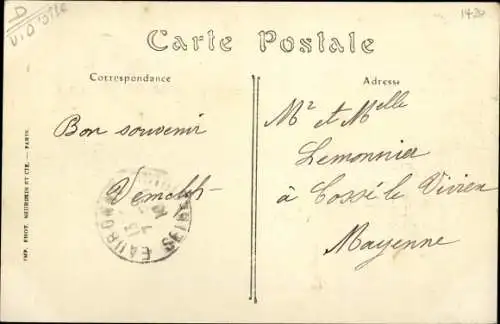 D
V. D'OIse
1420
Carte Postale
Correspondance
Adresse
Bon souvenir
Mr et Melle
Lemonnier
à Cossé le Vivien
Mayenne
IMP. PHOT. NEURDEIN ET CIE. — PARIS.